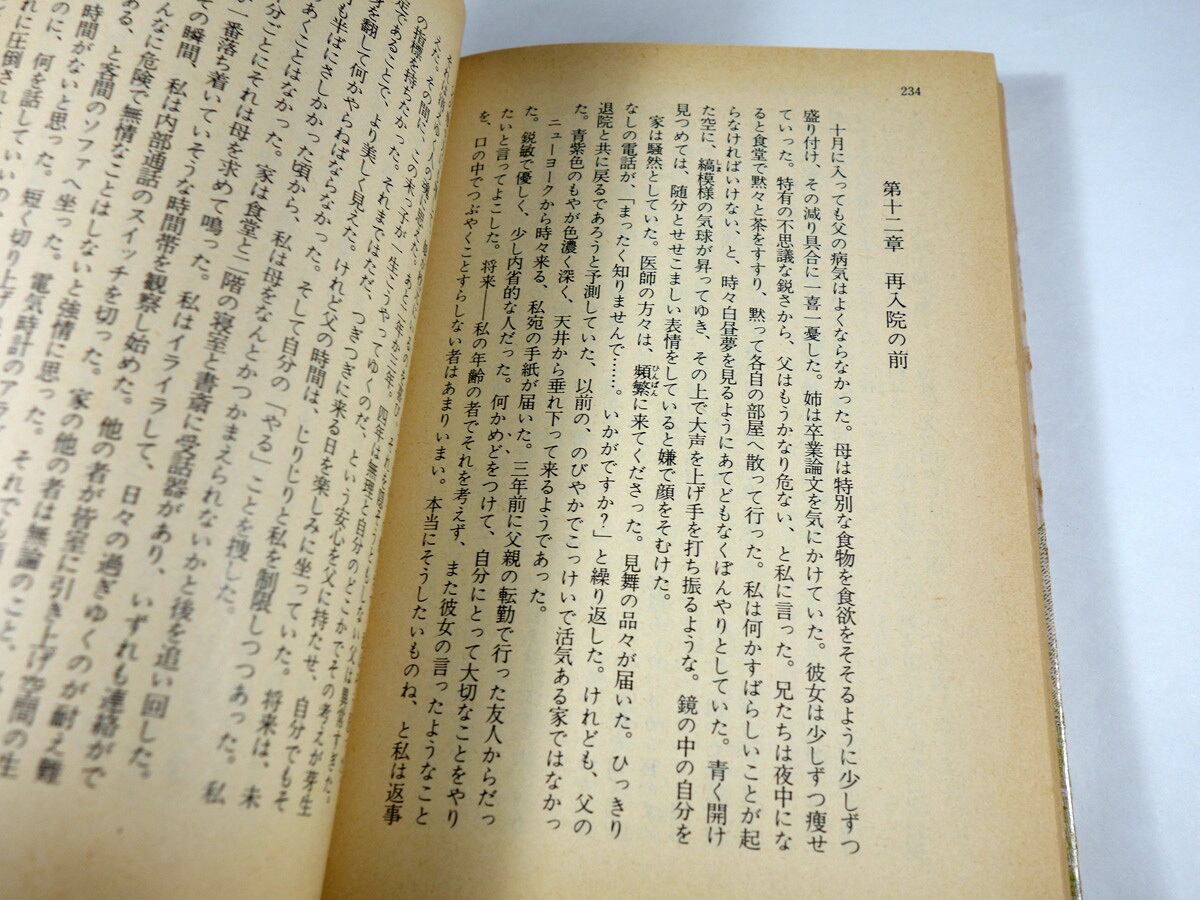 234
第十二章　再入院の前
十月に入っても父の病気はよくならなかった。母は特別な食物を食欲をそそるように少しずつ
盛り付け、その減り具合に一喜一憂した。姉は卒業論文を気にかけていた。彼女は少しずつ痩せ
ていった。特有の不思議な鋭さから、父はもうかなり危ない、と私に言った。兄たちは夜中にな
ると食堂で黙々と茶をすすり、黙って各自の部屋へ散って行った。私は何かすばらしいことが起
らなければいけない、と、時々白昼夢を見るようにあてどもなくぼんやりとしていた。青く開け
た空に、縞模様の気球が昇ってゆき、その上で大声を上げ手を打ち振るような。鏡の中の自分を
見つめては、随分とせせこましい表情をしていると嫌で顔をそむけた。
家は騒然としていた。医師の方々は、頻繁に来てくださった。見舞の品々が届いた。ひっきり
なしの電話が、「まったく知りませんで……。いかがですか？」と繰り返した。けれども、父の
退院と共に戻るであろうと予測していた、以前の、のびやかでこっけいで活気ある家ではなかっ
た。青紫色のもやが色濃く深く、天井から垂れ下って来るようであった。
ニューヨークから時々来る、私宛の手紙が届いた。三年前に父親の転勤で行った友人からだっ
た。鋭敏で優しく、少し内省的な人だった。何かめどをつけて、自分にとって大切なことをやり
たいと言ってよこした。将来——私の年齢の者でそれを考えず、また彼女の言ったようなこと
を、口の中でつぶやくことすらしない者はあまりいまい。本当にそうしたいものね、と私は返事
えた。その間に、この末っ子が一生こうやってゆくのだ、という安心を父に持たせ、自分でもそ
の指標を持ちたかった。それまではただ、つぎつぎに来る日を楽しみに坐っていた。将来は、未
定であることで、より美しく見えた。けれど父の時間は、じりじりと私を制限しつつあった。私
を翻して何かやらねばならなかった。そして自分の「やる」ことを捜した。
も半ばにさしかかった頃から、私は母をなんとかつかまえられないかと後を追い回した。
あくことはなかった。家は食堂と二階の寝室と書斎に受話器があり、いずれも連絡がで
分ごとにそれは母を求めて鳴った。私はイライラして、日々の過ぎゆくのが耐え難
一番落ち着いていそうな時間帯を観察し始めた。他の者が皆室に引き上げ空間の生
その瞬間、私は内部通話のスイッチを切った。家の他の者は無論のこと、
んなに危険で無情なことはしないと強情に思った。
る、と客間のソファへ坐った。電気時計の
時間がないと思った。短く切り上げ
のに、何を話していいの
れに圧倒され